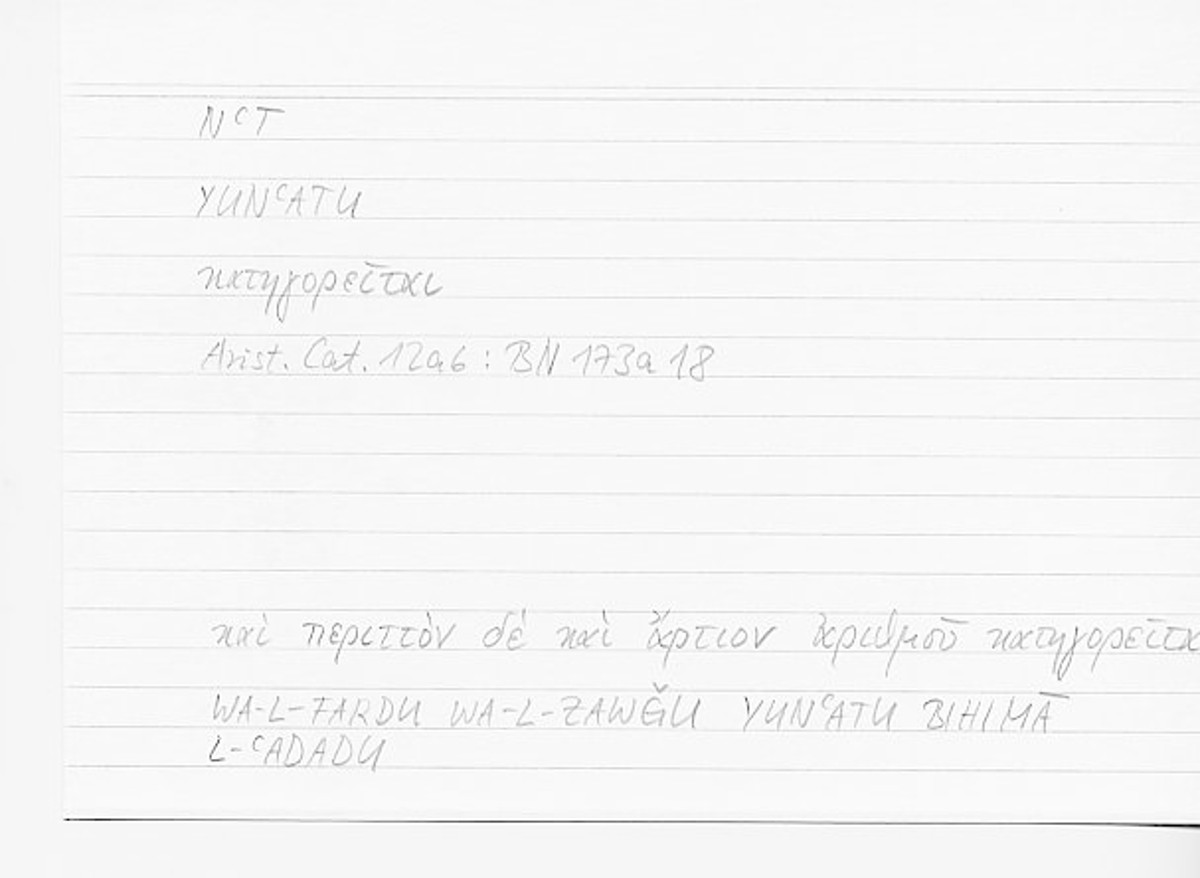 NʿT
YUNʿATU
κατηγορεῖται
Arist. Cat. 12a6 : BN 173a 18
καὶ περιττὸν δὲ καὶ ἄρτιον ἀριθμοῦ κατηγορεῖτα
WA-L-FARDU WA-L-ZAWǦU YUNʿATU BIHIMĀ
L-ʿADADU